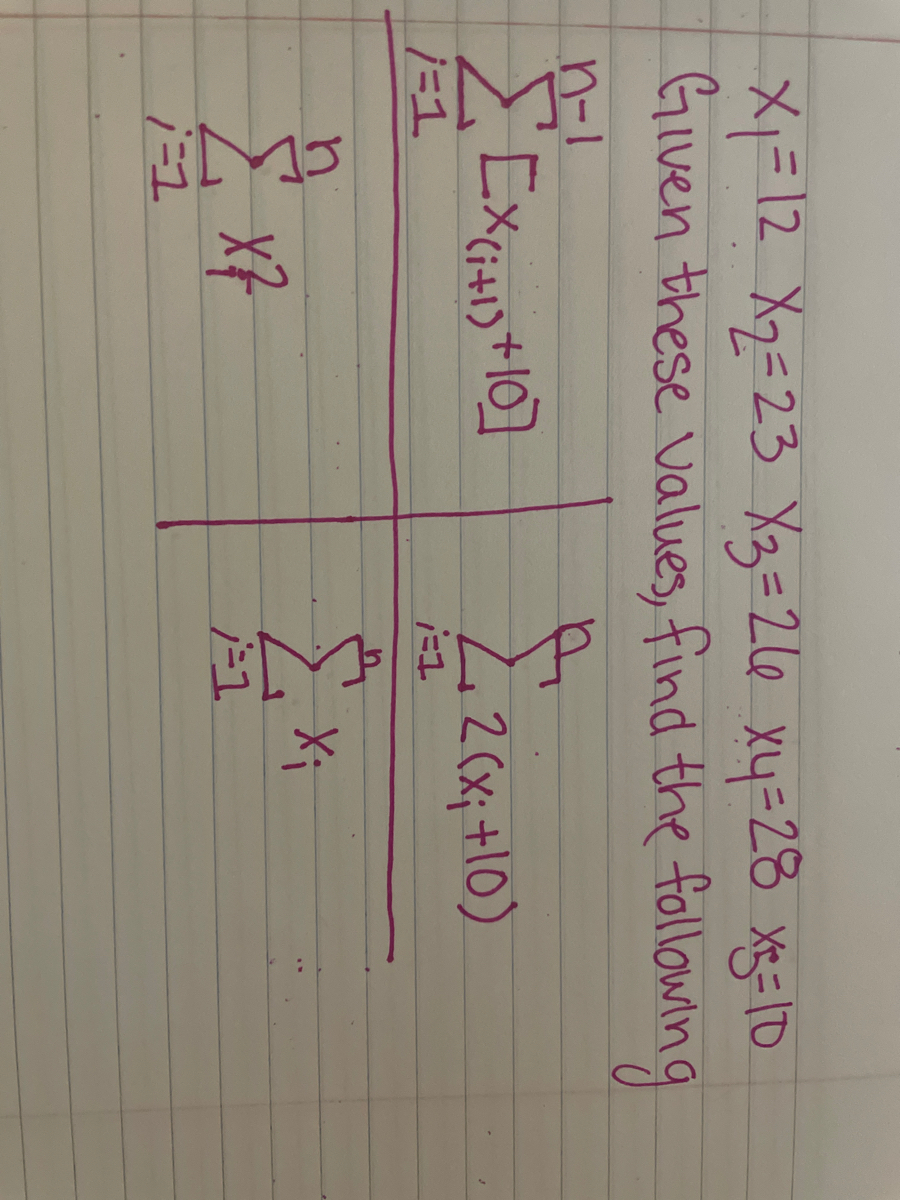 x₁=12 x₂=23 x₃=26 x₄=28 x₅=10
Given these values, find the following
n-1
∑ [x₍ᵢ₊₁₎+10]
i=1
n
∑ 2(xᵢ+10)
i=1
n
∑ xᵢ²
i=1
n
∑ xᵢ
i=1